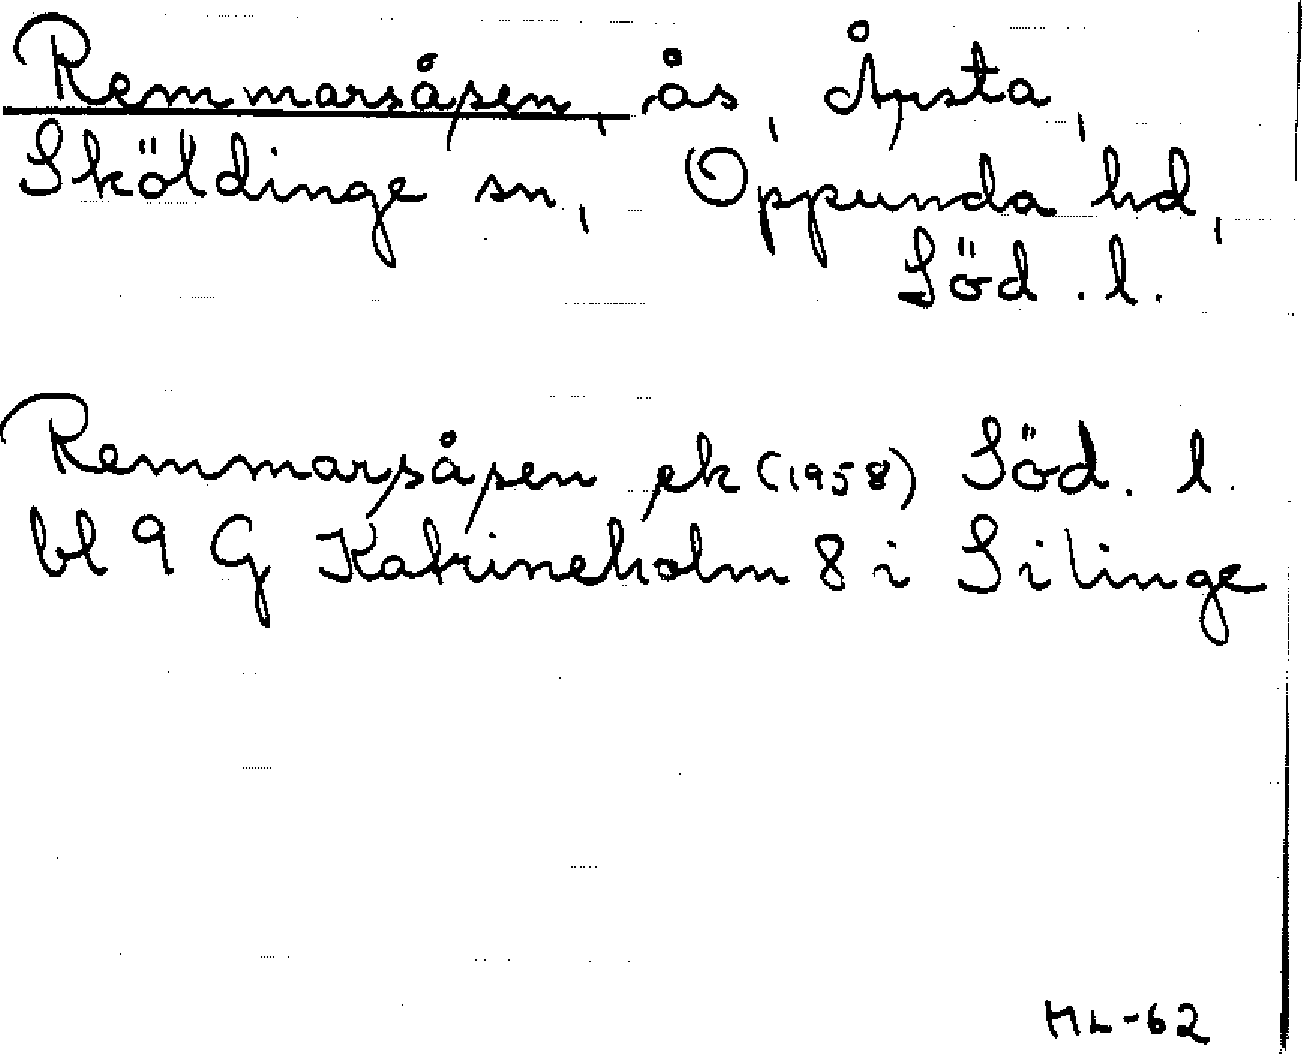 Remmarsåsen, ås, Åsta,
Sköldinge sn, Oppunda hd,
Söd. l.
Remmarsåsen ek (1958) Söd. l.
bl 9 G Katrineholm 8 i Silinge
ML-62